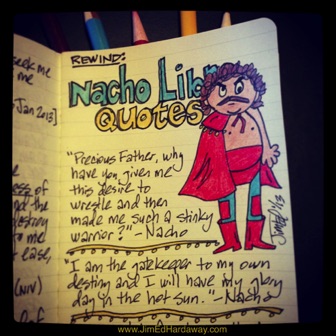 seek me
me
Jan 2013]
ess of
not the
destiny
to me
ease,
(NIV)
of
REWIND:
Nacho Libre
Quotes
"Precious Father, why
have you given me
this desire to
wrestle and then
made me such a stinky
warrior?" -Nacho
"I am the gatekeeper to my own
destiny and I will have my glory
day in the hot sun." -Nacho
www.JimEdHardaway.com